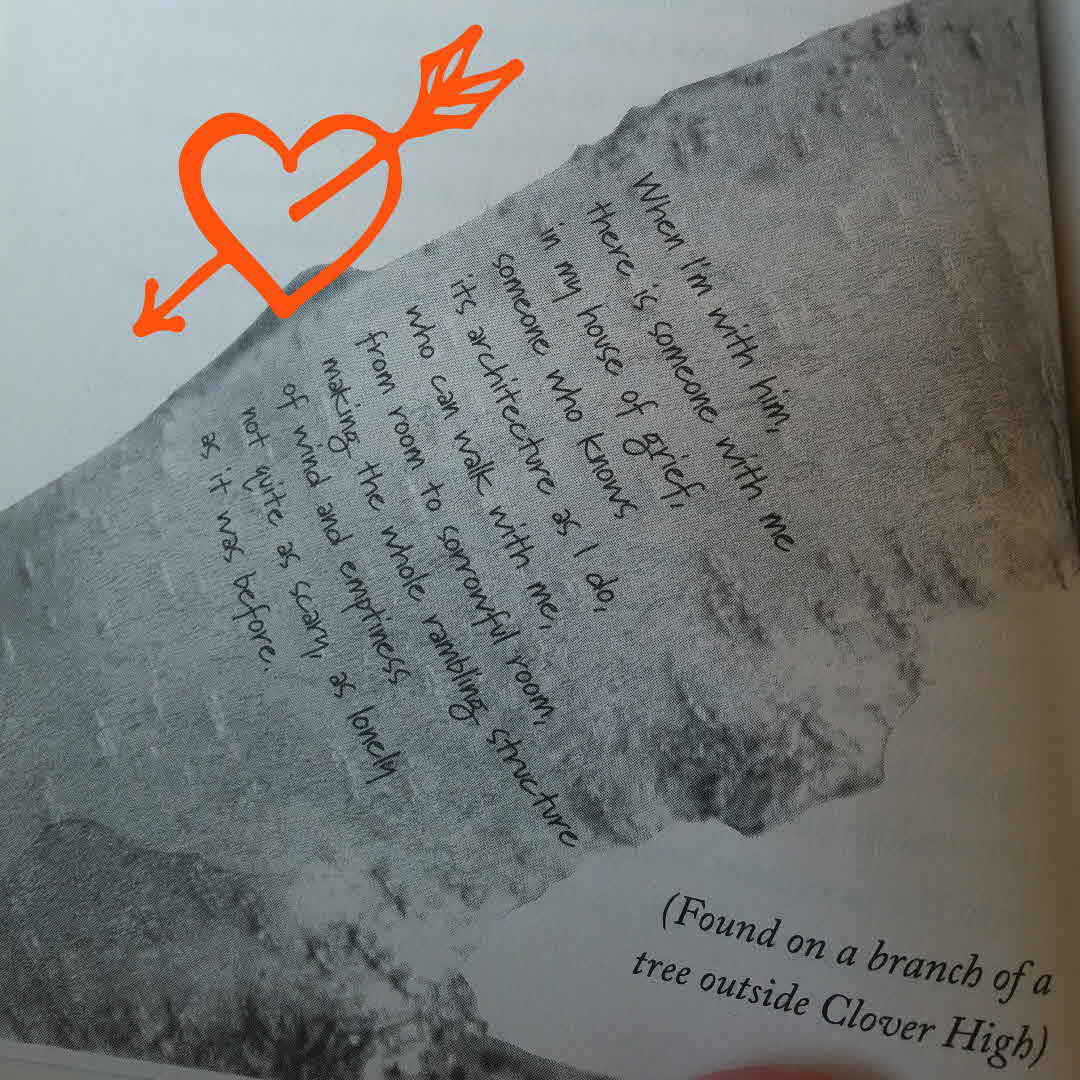 When I'm with him,
there is someone with me
in my house of grief,
someone who knows
its architecture as I do,
who can walk with me,
from room to sorrowful room,
making the whole rambling structure
of wind and emptiness
not quite as scary, as lonely
as it was before.
(Found on a branch of a
tree outside Clover High)